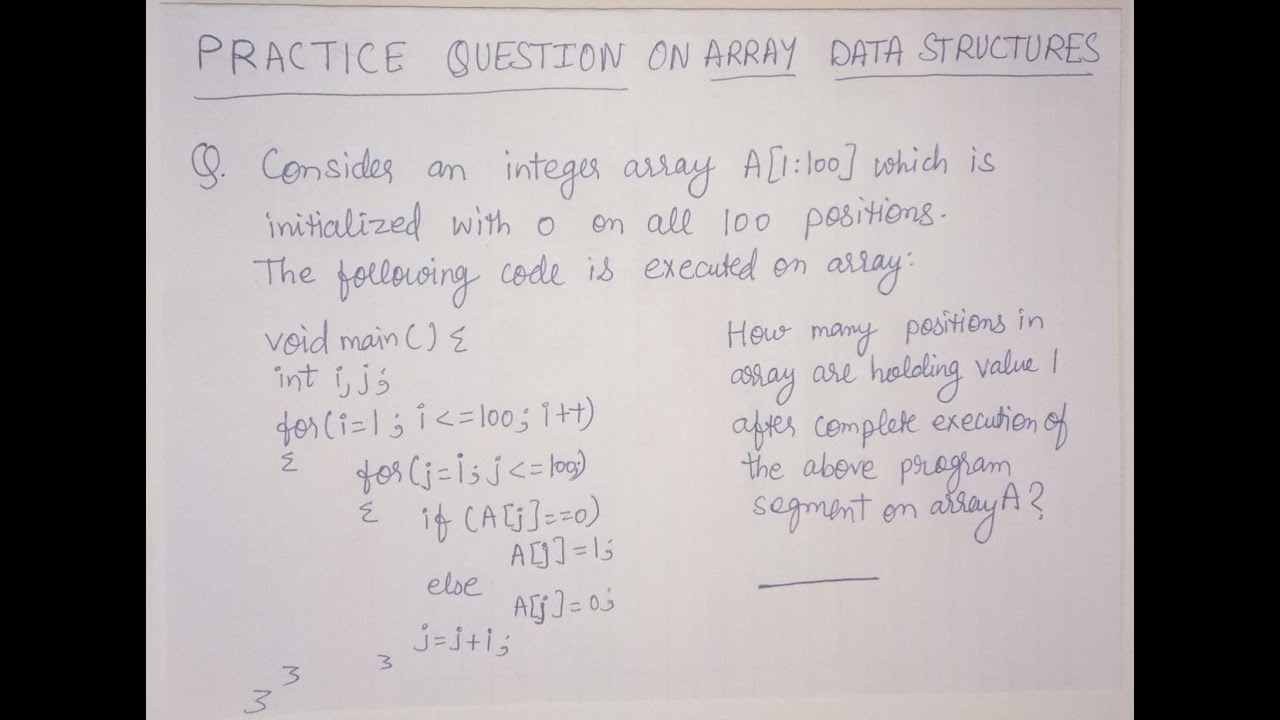 PRACTICE QUESTION ON ARRAY DATA STRUCTURES
Q. Consider an integer array A[1:100] which is
initialized with 0 on all 100 positions.
The following code is executed on array:
void main() {
int i, j;
for(i=1; i<=100; i++)
{ for(j=i; j<=100;)
{ if (A[j]==0)
A[j]=1;
else
A[j]=0;
j=j+i;
}
}
}
How many positions in
array are holding value 1
after complete execution of
the above program
segment on array A?